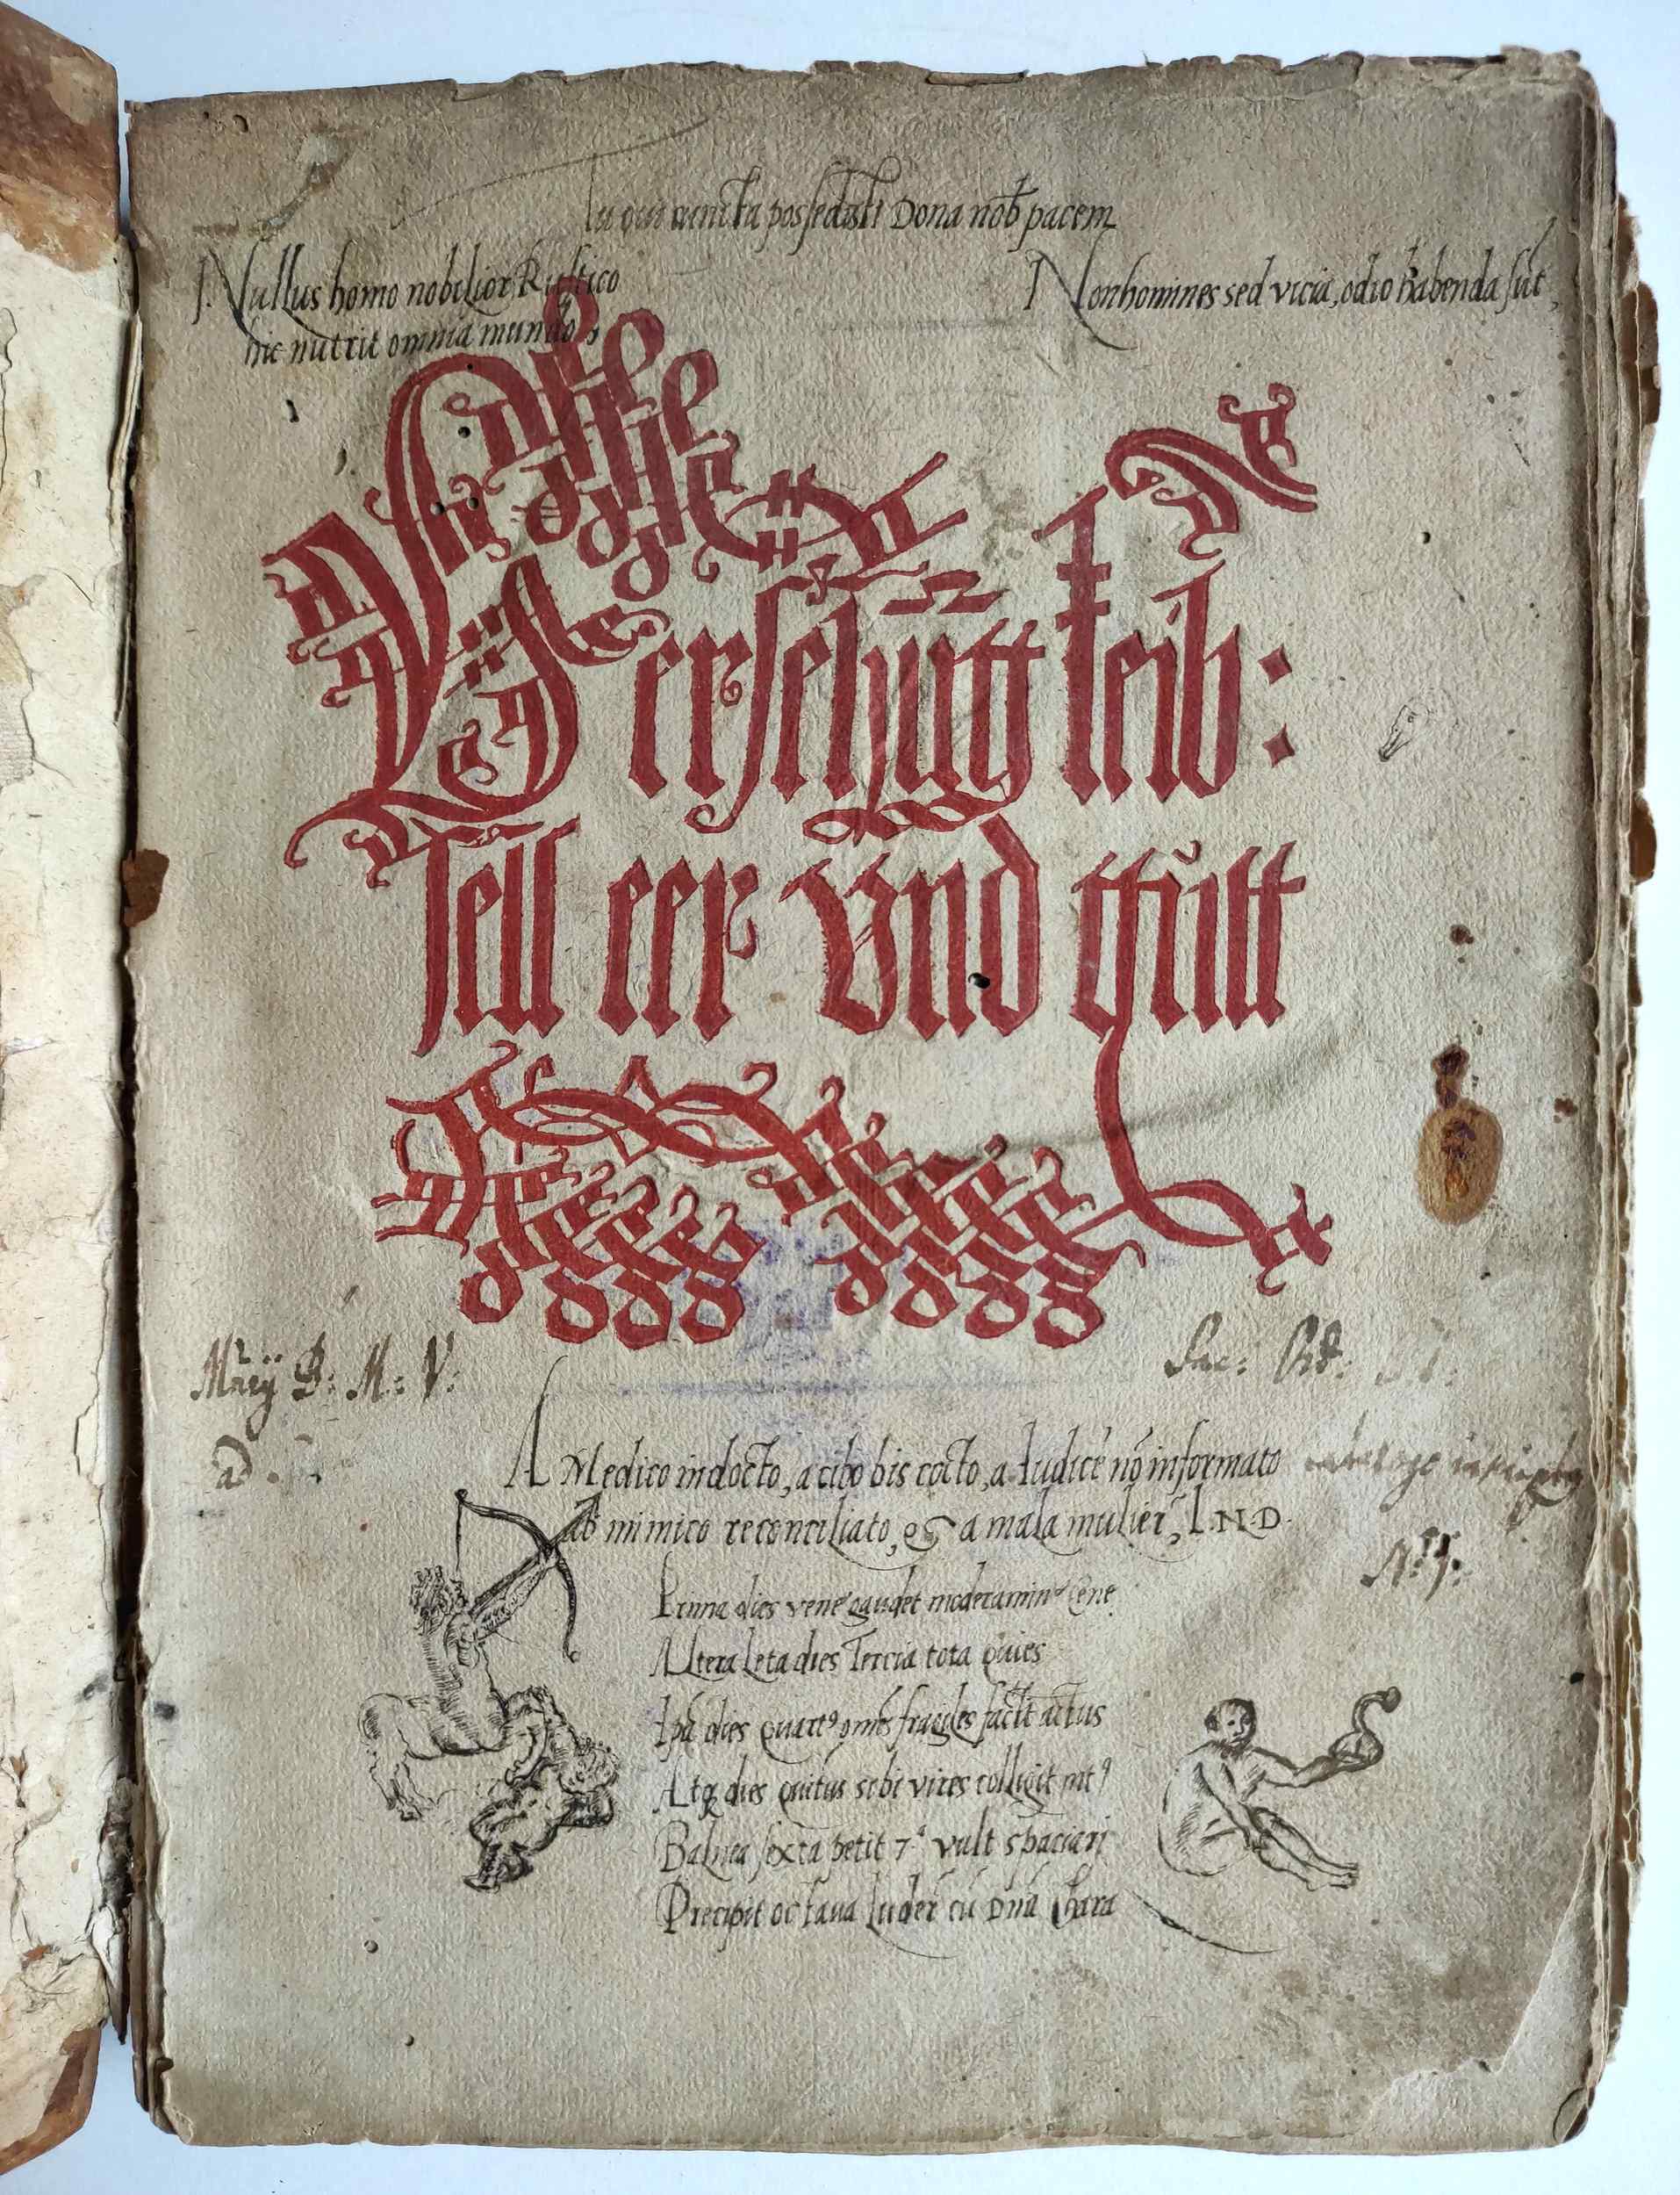 Tu qui cuncta possedisti Dona nob pacem
Nullus homo nobilior Rustico
hic nutrit omnia mundo,
Non homines sed vicia, odio habenda sūt,
Verschütt leib:
sell eer vnd gütt
D: M: V:
ad
A Medico indocto, a cibo bis cocto, a Iudice nō informato
ab inimico reconciliato, & a mala mulier, L.N.D.
Prima dies vene gaudet moderamine Cene
Altera Leta dies Tercia tota quies
Ipā dies quartꝰ omēs fragiles facit actus
Atqꝫ dies quītus sibi vires colligit intꝰ
Balnea sexta petit 7.ᵃ vult spaciari
Precipit octaua luder cū Dnā Chara